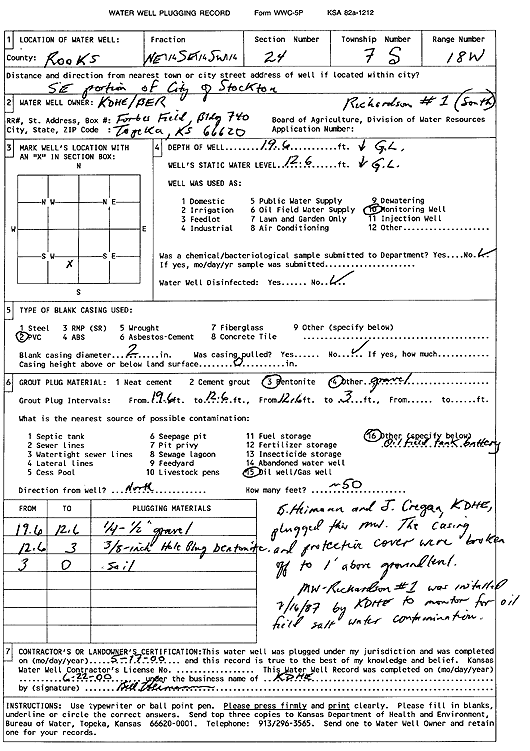 WATER WELL PLUGGING RECORD Form WWC-5P KSA 82a-1212
1 LOCATION OF WATER WELL: Fraction Section Number Township Number Range Number
County: Rooks NE 1/4 SE 1/4 SW 1/4 24 7 S 18W
Distance and direction from nearest town or city street address of well if located within city?
SE portion of City of Stockton
2 WATER WELL OWNER: KDHE/BER Richardson #1 (South)
RR#, St. Address, Box #: Forbes Field, Bldg 740 Board of Agriculture, Division of Water Resources
City, State, ZIP Code : Topeka, KS 66620 Application Number:
3 MARK WELL'S LOCATION WITH AN "X" IN SECTION BOX:
N
N W N E
W E
S W S E
X
S
4 DEPTH OF WELL.....19.6.....ft. ↓ G.L.
WELL'S STATIC WATER LEVEL..12.6..ft. ↓ G.L.
WELL WAS USED AS:
1 Domestic 5 Public Water Supply 9 Dewatering
2 Irrigation 6 Oil Field Water Supply 10 Monitoring Well
3 Feedlot 7 Lawn and Garden Only 11 Injection Well
4 Industrial 8 Air Conditioning 12 Other..........
Was a chemical/bacteriological sample submitted to Department? Yes....No.✓
If yes, mo/day/yr sample was submitted...................
Water Well Disinfected: Yes..... No.✓
5 TYPE OF BLANK CASING USED:
1 Steel 3 RMP (SR) 5 Wrought 7 Fiberglass 9 Other (specify below)
2 PVC 4 ABS 6 Asbestos-Cement 8 Concrete Tile
Blank casing diameter...2....in. Was casing pulled? Yes..... No..✓.. If yes, how much..........
Casing height above or below land surface.......0........in.
6 GROUT PLUG MATERIAL: 1 Neat cement 2 Cement grout 3 Bentonite 4 Other..gravel..........
Grout Plug Intervals: From.19.6.ft. to.12.6.ft., From.12.6.ft. to..3..ft., From...... to......ft.
What is the nearest source of possible contamination:
1 Septic tank 6 Seepage pit 11 Fuel storage 16 Other (specify below)
2 Sewer lines 7 Pit privy 12 Fertilizer storage Oil field tank battery
3 Watertight sewer lines 8 Sewage lagoon 13 Insecticide storage
4 Lateral lines 9 Feedyard 14 Abandoned water well
5 Cess Pool 10 Livestock pens 15 Oil well/Gas well
Direction from well? ..North....... How many feet? ..~50.......
FROM TO PLUGGING MATERIALS
19.6 12.6 1/4-1/2" gravel
12.6 3 3/8-inch Hole Plug bentonite
3 0 soil
B. Heimann and J. Cregan, KDHE,
plugged this mw. The casing
and protective cover were broken
off to 1' above ground level.
MW-Richardson #1 was installed
7/16/87 by KDHE to monitor for oil
field salt water contamination.
7 CONTRACTOR'S OR LANDOWNER'S CERTIFICATION: This water well was plugged under my jurisdiction and was completed
on (mo/day/year).....5-17-00..... and this record is true to the best of my knowledge and belief. Kansas
Water Well Contractor's License No. .............. This Water Well Record was completed on (mo/day/
year)......6-22-00......under the business name of ....KDHE..........
by (signature) ...Bill Heimann...........
INSTRUCTIONS: Use typewriter or ball point pen. Please press firmly and print clearly. Please fill in blanks,
underline or circle the correct answers. Send top three copies to Kansas Department of Health and Environment,
Bureau of Water, Topeka, Kansas 66620-0001. Telephone: 913/296-3565. Send one to Water Well Owner and retain
one for your records.